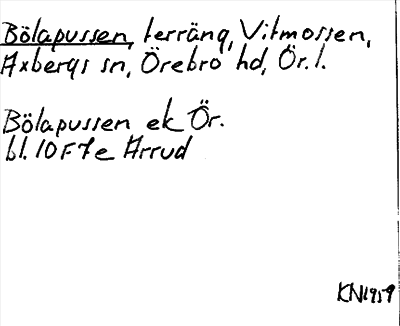 Bölapussen, terräng, Vitmossen,
Axbergs sn, Örebro hd, Ör. l.
Bölapussen ek Ör.
bl. 10F7e Ärrud
KN1959